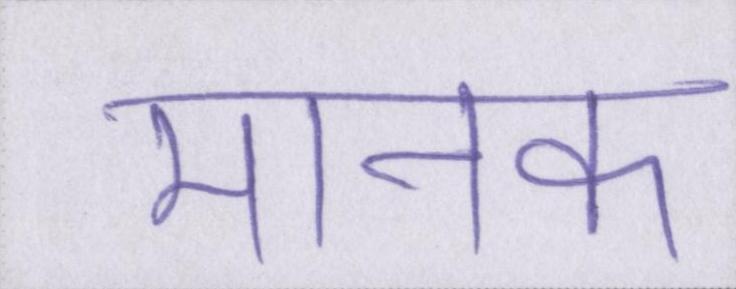 मानक